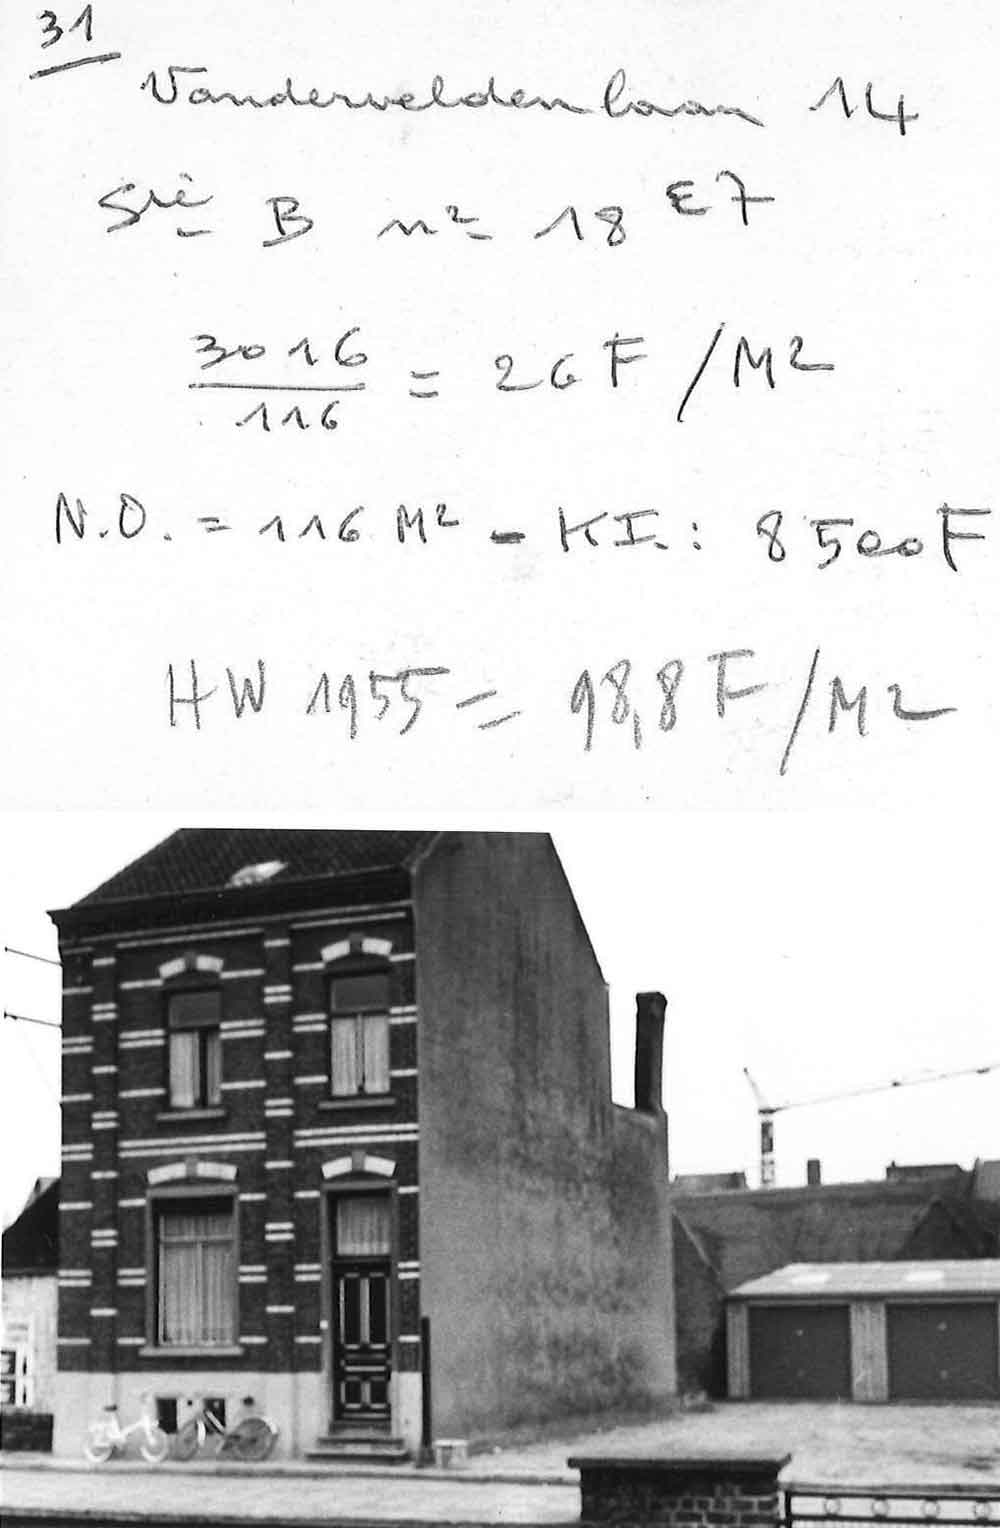 31
Vanderveldenlaan 14
Sie B n° 18 E7
3016
116
= 26 F / M2
N.O. = 116 M2 - K.I.: 8500 F
HW 1955 = 98,8 F / M2